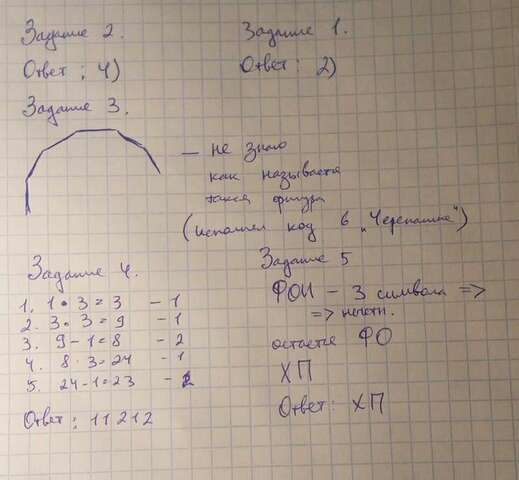 Задание 2.
Ответ: 4)
Задание 1.
Ответ: 2)
Задание 3.
— не знаю
как называется
такая фигура
(исполнял код в "Черепашке")
Задание 4.
1. 1·3=3 - 1
2. 3·3=9 - 1
3. 9-1=8 - 2
4. 8·3=24 - 1
5. 24-1=23 - 2
Ответ: 11212
Задание 5
ФОИ - 3 символа =>
=> нечётн.
остаётся ФО
ХП
Ответ: ХП